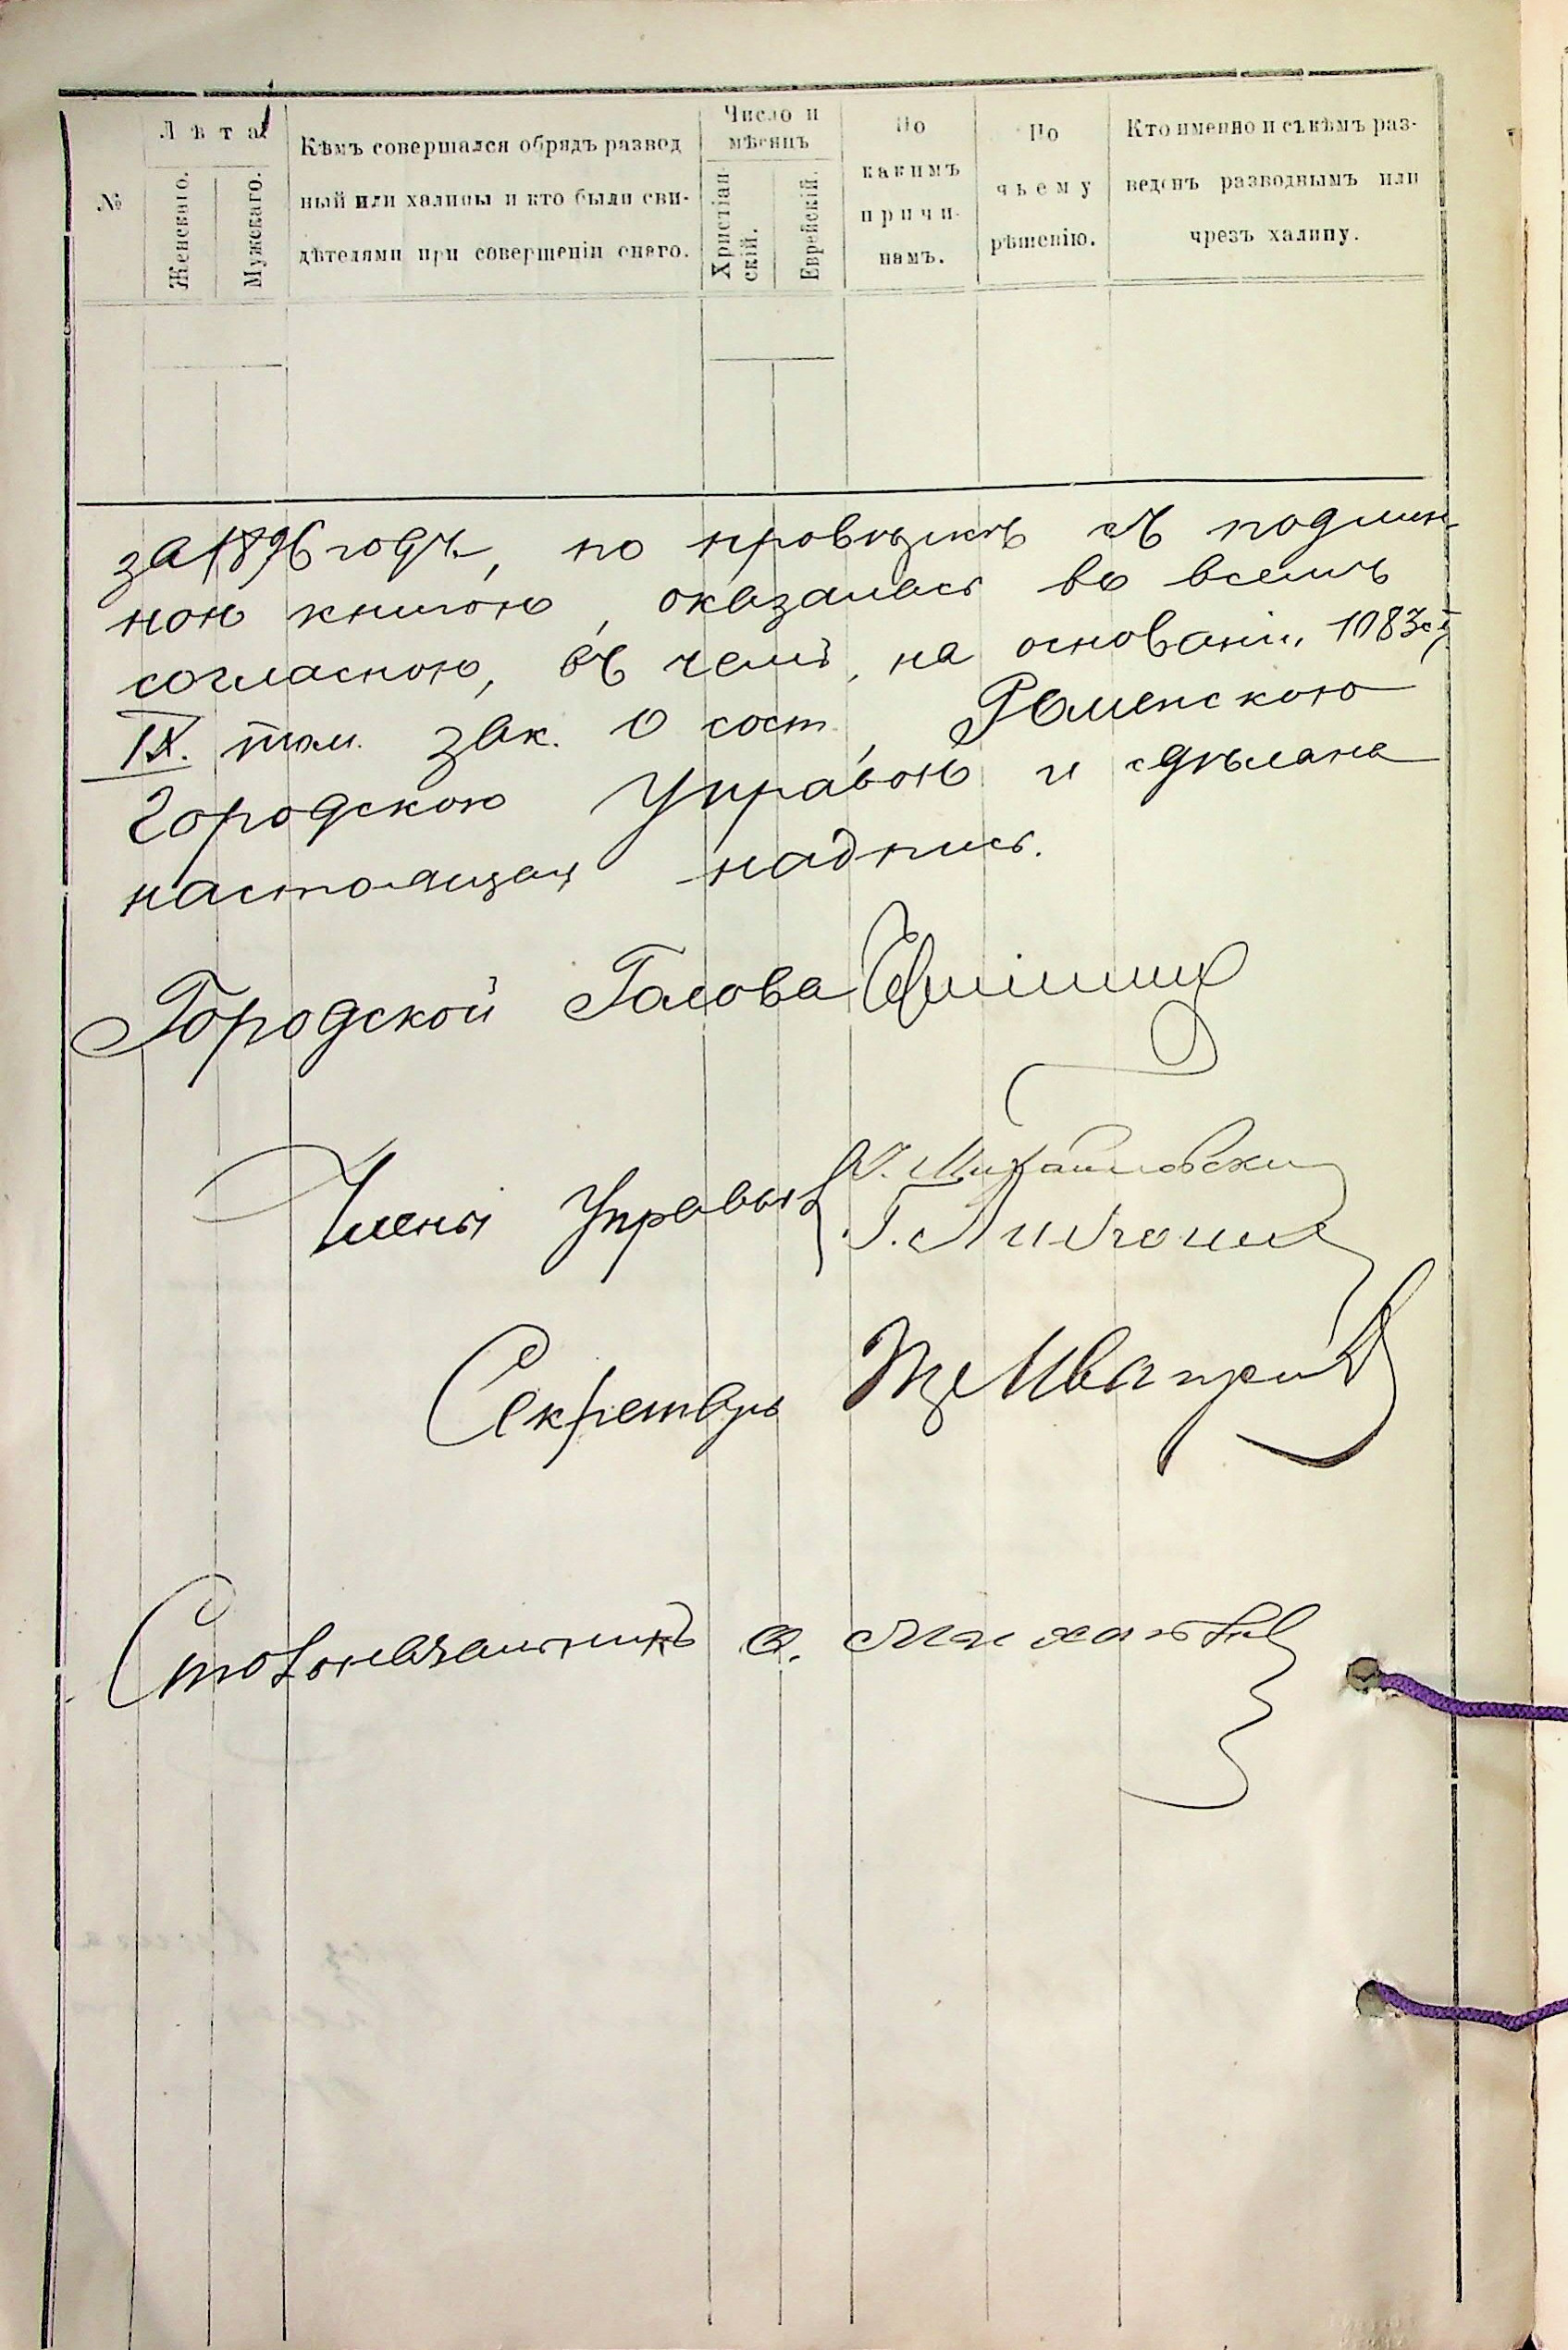 №
Лѣта
Женскаго.
Мужскаго.
Кѣмъ совершался обрядъ развод
ный или халицы и кто были сви-
дѣтелями при совершеніи онаго.
Число и
мѣсяцъ
Христіан-
скій.
Еврейскій.
По
какимъ
причи-
намъ.
По
чьему
рѣшенію.
Кто именно и съ кѣмъ раз-
веденъ разводнымъ или
чрезъ халицу.
за 1896 годъ, по провѣркѣ съ подлин-
ною книгою, оказалась во всемъ
согласною, въ чемъ, на основаніи 1083 ст.
IX. том. зак. о сост., Роменскою
Городскою Управою и сдѣлана
настоящая надпись.
Городской Голова
Члены Управы
Михайловскій
Г.
Секретарь
Столоначальникъ